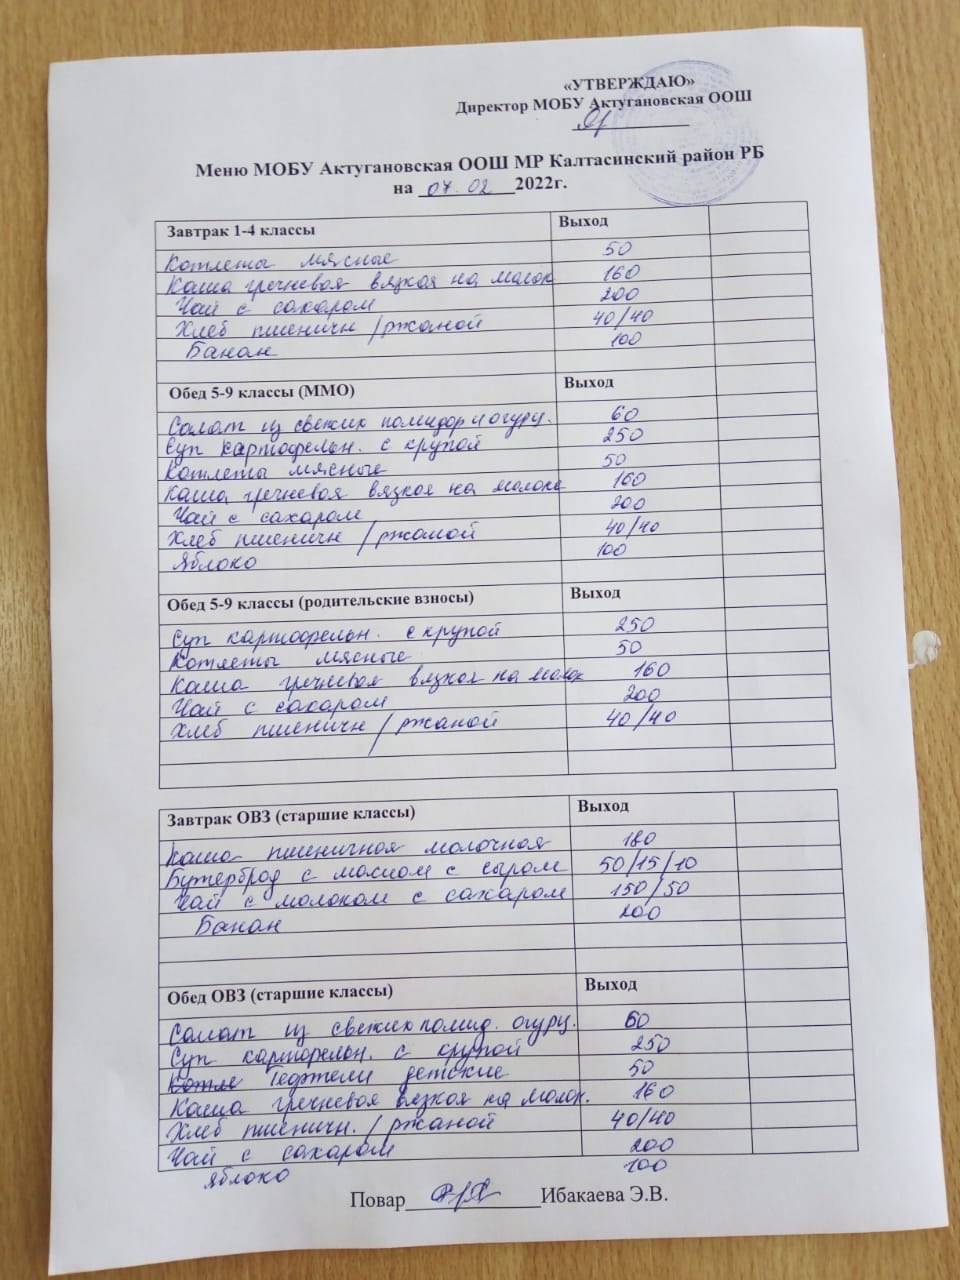 «УТВЕРЖДАЮ»
Директор МОБУ Актугановская ООШ
Меню МОБУ Актугановская ООШ МР Калтасинский район РБ
на 07.02 2022г.
Завтрак 1-4 классы Выход
Котлеты мясные 50
Каша гречневая вязкая на молок 160
Чай с сахаром 200
Хлеб пшеничн/ржаной 40/40
Банан 100
Обед 5-9 классы (ММО) Выход
Салат из свежих помидор и огурц. 60
Суп картофельн. с крупой 250
Котлеты мясные 50
Каша гречневая вязкая на молоке 160
Чай с сахаром 200
Хлеб пшеничн/ржаной 40/40
Яблоко 100
Обед 5-9 классы (родительские взносы) Выход
Суп картофельн. с крупой 250
Котлеты мясные 50
Каша гречневая вязкая на молок 160
Чай с сахаром 200
Хлеб пшеничн/ржаной 40/40
Завтрак ОВЗ (старшие классы) Выход
Каша пшеничная молочная 180
Бутерброд с маслом с сыром 50/15/10
Чай с молоком с сахаром 150/50
Банан 200
Обед ОВЗ (старшие классы) Выход
Салат из свежих помид. огурц. 60
Суп картофельн. с крупой 250
Котле Тефтели детские 50
Каша гречневая вязкая на молок. 160
Хлеб пшеничн./ржаной 40/40
Чай с сахаром 200
яблоко 100
Повар Ибакаева Э.В.